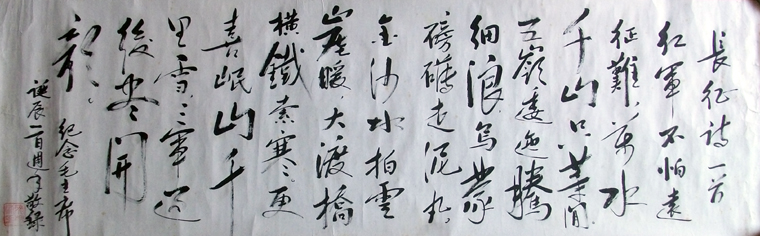 長征詩一首
紅軍不怕遠
征難萬水
千山只等閒
五嶺逶迤騰
細浪烏蒙
磅礴走泥丸
金沙水拍雲
崖暖大渡橋
橫鐵索寒更
喜岷山千
里雪三軍過
後盡開
顏
紀念毛主席
誕辰一百週年敬錄